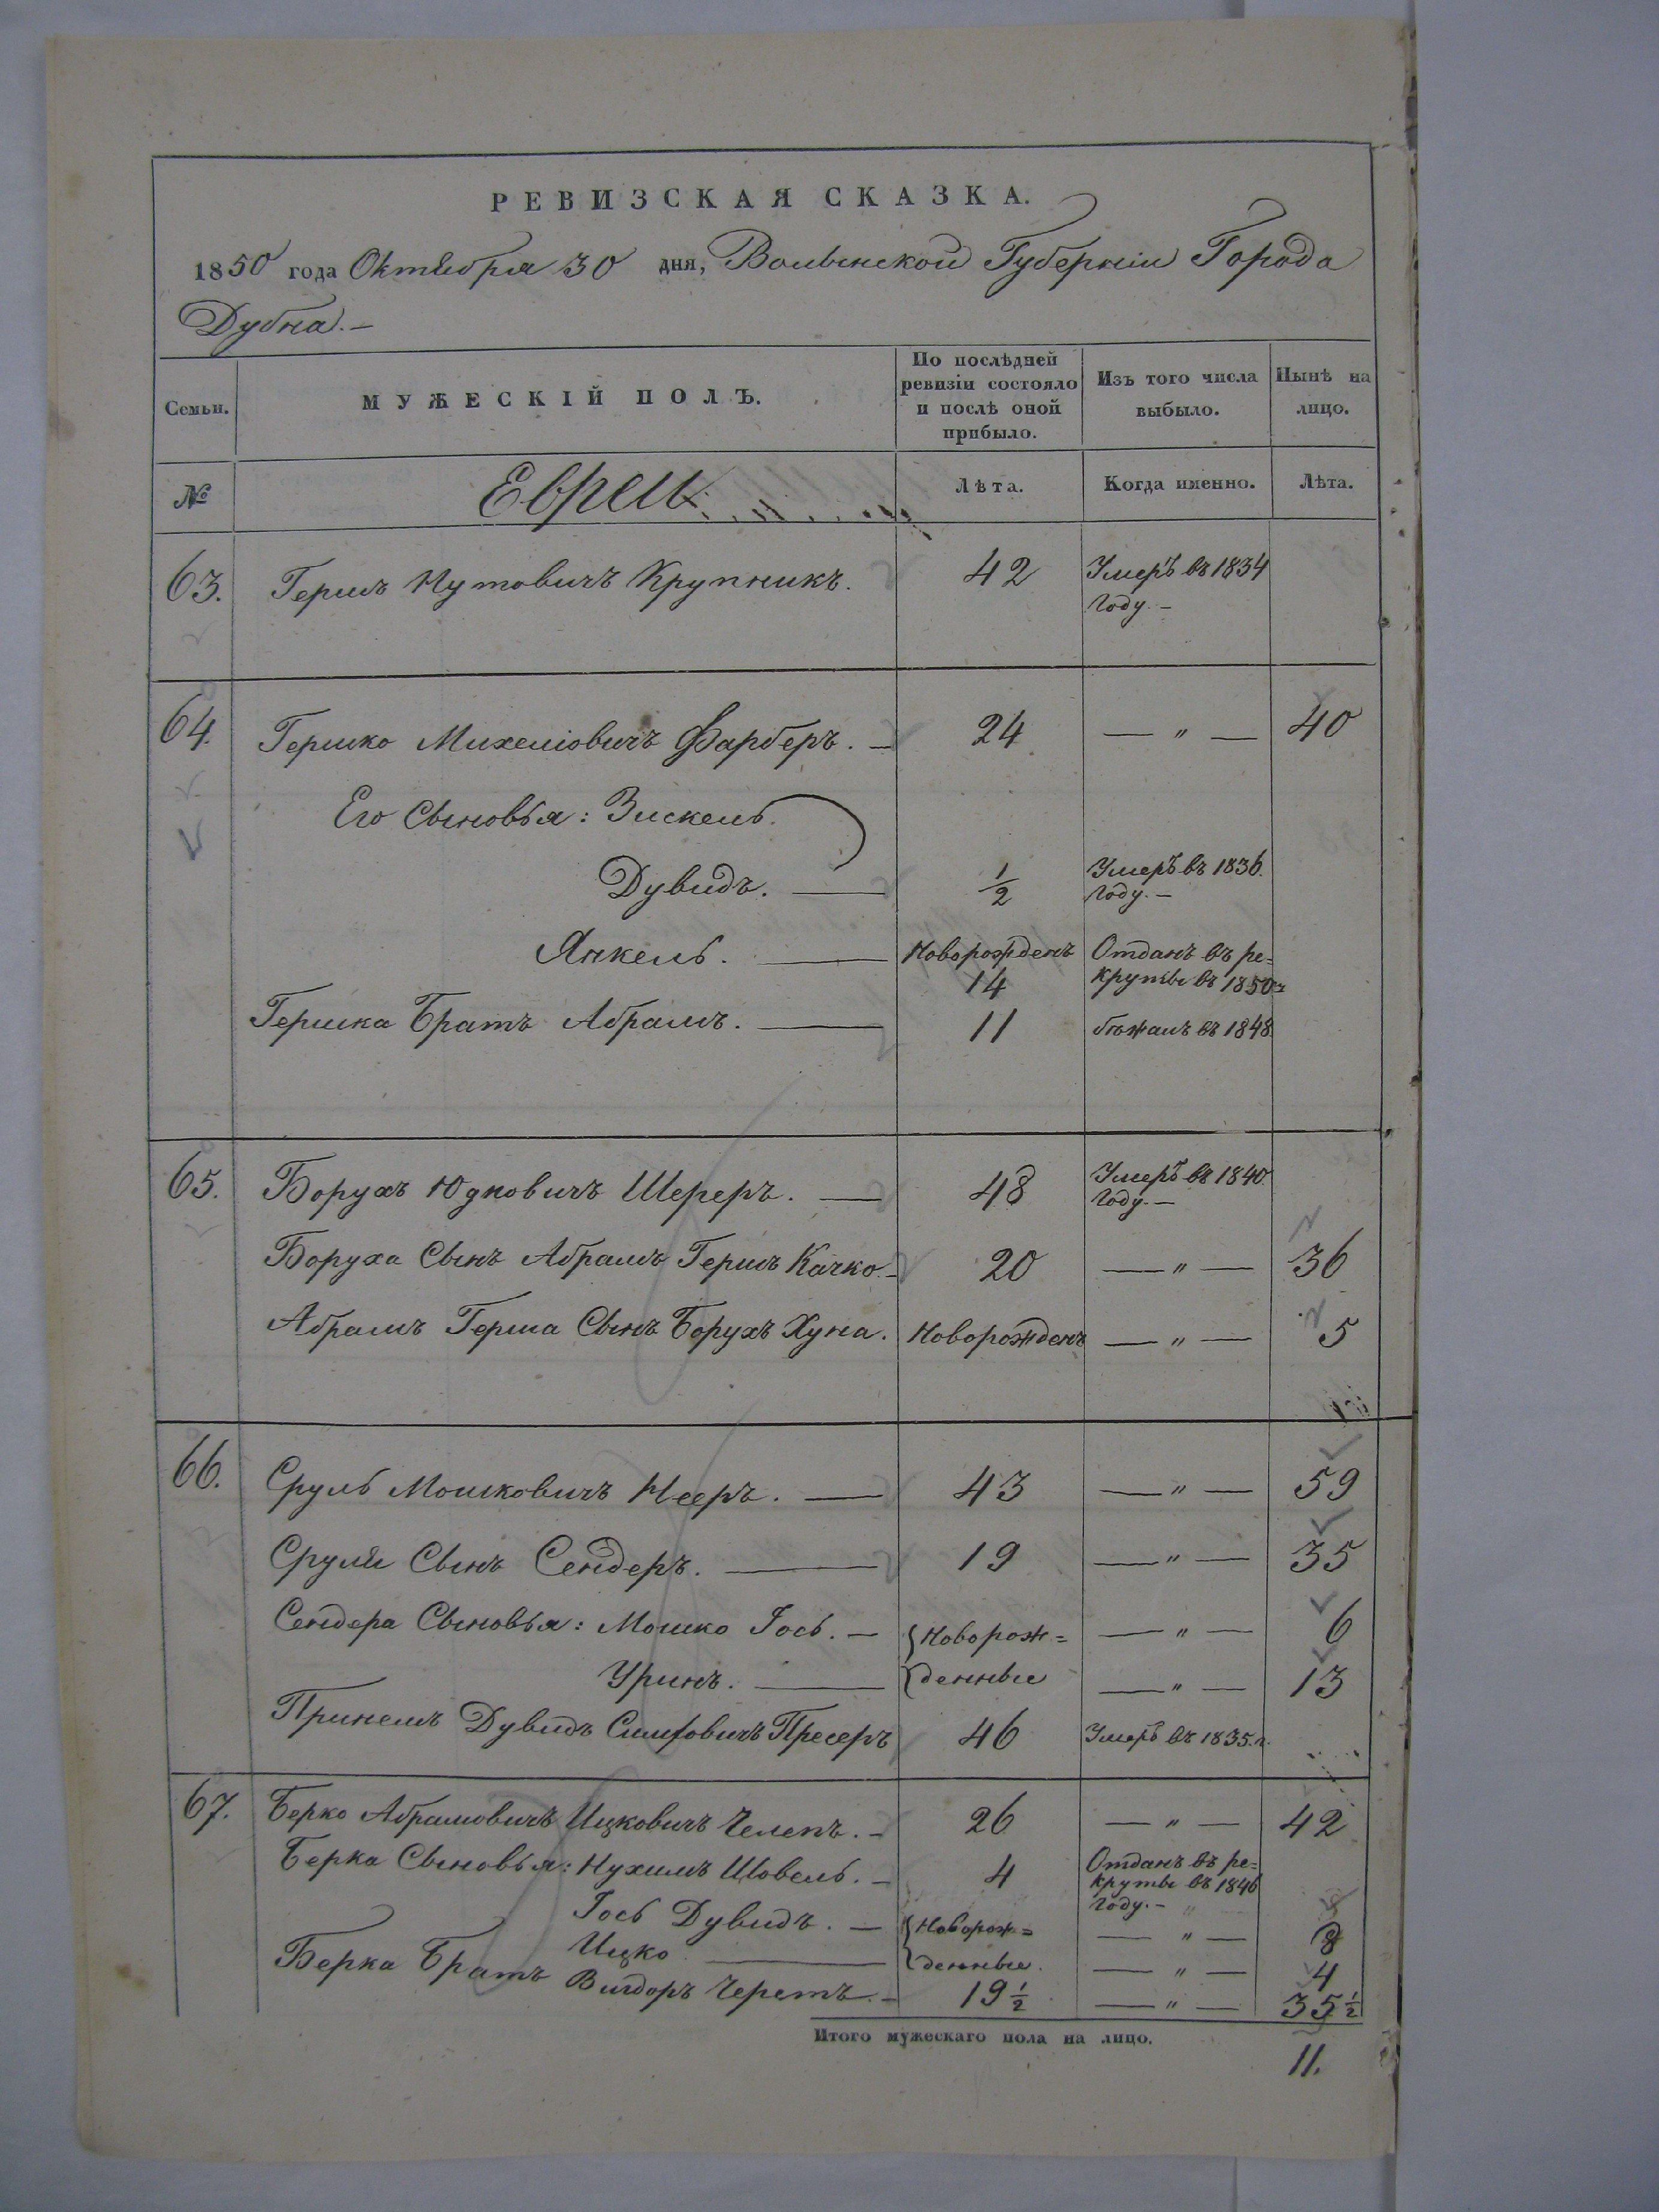 РЕВИЗСКАЯ СКАЗКА.
1850 года Октября 30 дня, Волынской Губерніи Города
Дубна.—
Семьи.
МУЖЕСКІЙ ПОЛЪ.
По послѣдней
ревизіи состояло
и послѣ оной
прибыло.
Изъ того числа
выбыло.
Нынѣ на
лицо.
№
Евреи
Лѣта.
Когда именно.
Лѣта.
63. Гершъ Нутовичъ Крупникъ. 42 Умеръ въ 1834
году.—
64. Гершко Михеліовичъ Фарберъ. — 24 — " — 40
Его Сыновья: Зискель
Дувидъ. — 1/2 Умеръ въ 1836.
году.—
Янкель. — Новорожденъ Отданъ въ ре=
14 круты въ 1850 г
Гершка Братъ Абрамъ. — 11 бѣжалъ въ 1848
65. Борухъ Юдковичъ Шереръ. — 48 Умеръ въ 1840
году.—
Боруха Сынъ Абрамъ Гершъ Качко.— 20 — " — 36
Абрамъ Герша Сынъ Борухъ Хуна. Новорожденъ — " — 5
66. Сруль Мошковичъ Нееръ. — 43 — " — 59
Сруля Сынъ Сендеръ. — 19 — " — 35
Сендера Сыновья: Мошко Іось. — Новорож= — " — 6
Уринъ. — денные — " — 13
Дувидъ Пресеръ 46 Умеръ въ 1835. г.
67. Берко Абрамовичъ Ицковичъ Челепъ. — 26 — " — 42
Берка Сыновья: Нухимъ Шовель. — 4 Отданъ въ ре=
круты въ 1846
году.—
Іось Дувидъ. — Новорож= — " — 8
Ицко — денные. — " — 4
Берка Братъ Вигдоръ — 19 1/2 — " — 35 1/2
Итого мужескаго пола на лицо.
11.